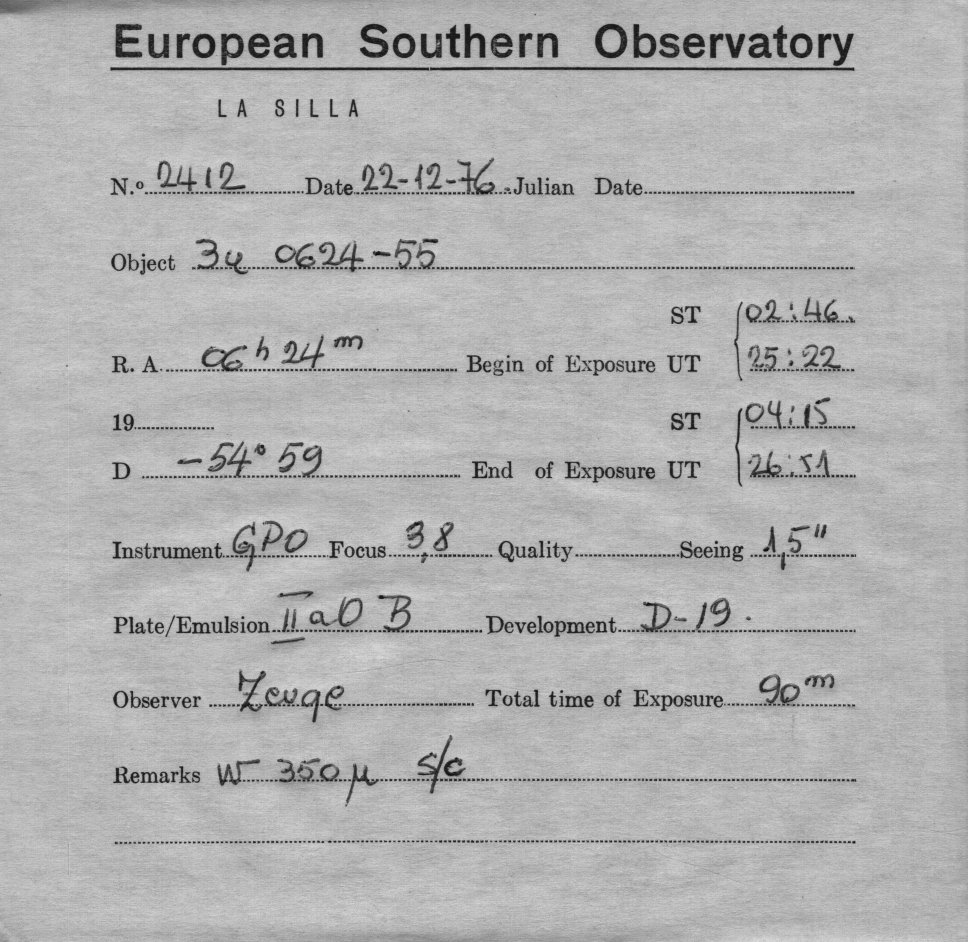 European Southern Observatory
LA SILLA
N.º 2412 Date 22-12-76 Julian Date
Object 3u 0624-55
ST 02:46.
R. A. 06h 24m Begin of Exposure UT 25:22
19 ST 04:15
D -54° 59 End of Exposure UT 26:51
Instrument GPO Focus 3,8 Quality Seeing 1,5"
Plate/Emulsion IIaO B Development D-19.
Observer Zeuge Total time of Exposure 90m
Remarks W 350 μ s/c